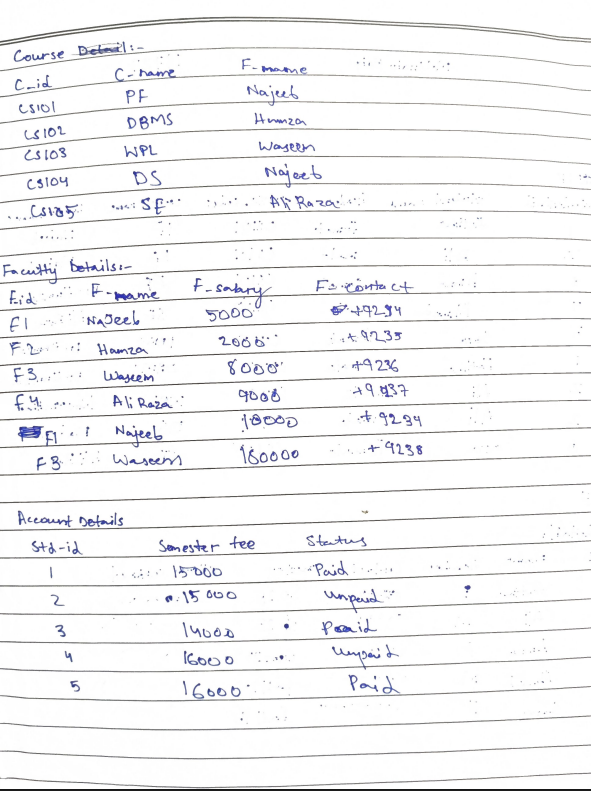 Course Detail:-
C-id C-name F-name
CS101 PF Najeeb
CS102 DBMS Hamza
CS103 WPL Waseem
CS104 DS Najeeb
CS105 SE Ali Raza
Faculty Details:-
F.id F-name F-salary F-contact
F1 Najeeb 5000 +9234
F2 Hamza 2000 +9235
F3 Waseem 8000 +9236
F4 Ali Raza 9000 +9237
F1 Najeeb 10000 +9234
F3 Waseem 100000 +9238
Account Details
Std-id Semester fee Status
1 15000 Paid
2 15000 Unpaid
3 14000 Paid
4 16000 Unpaid
5 16000 Paid